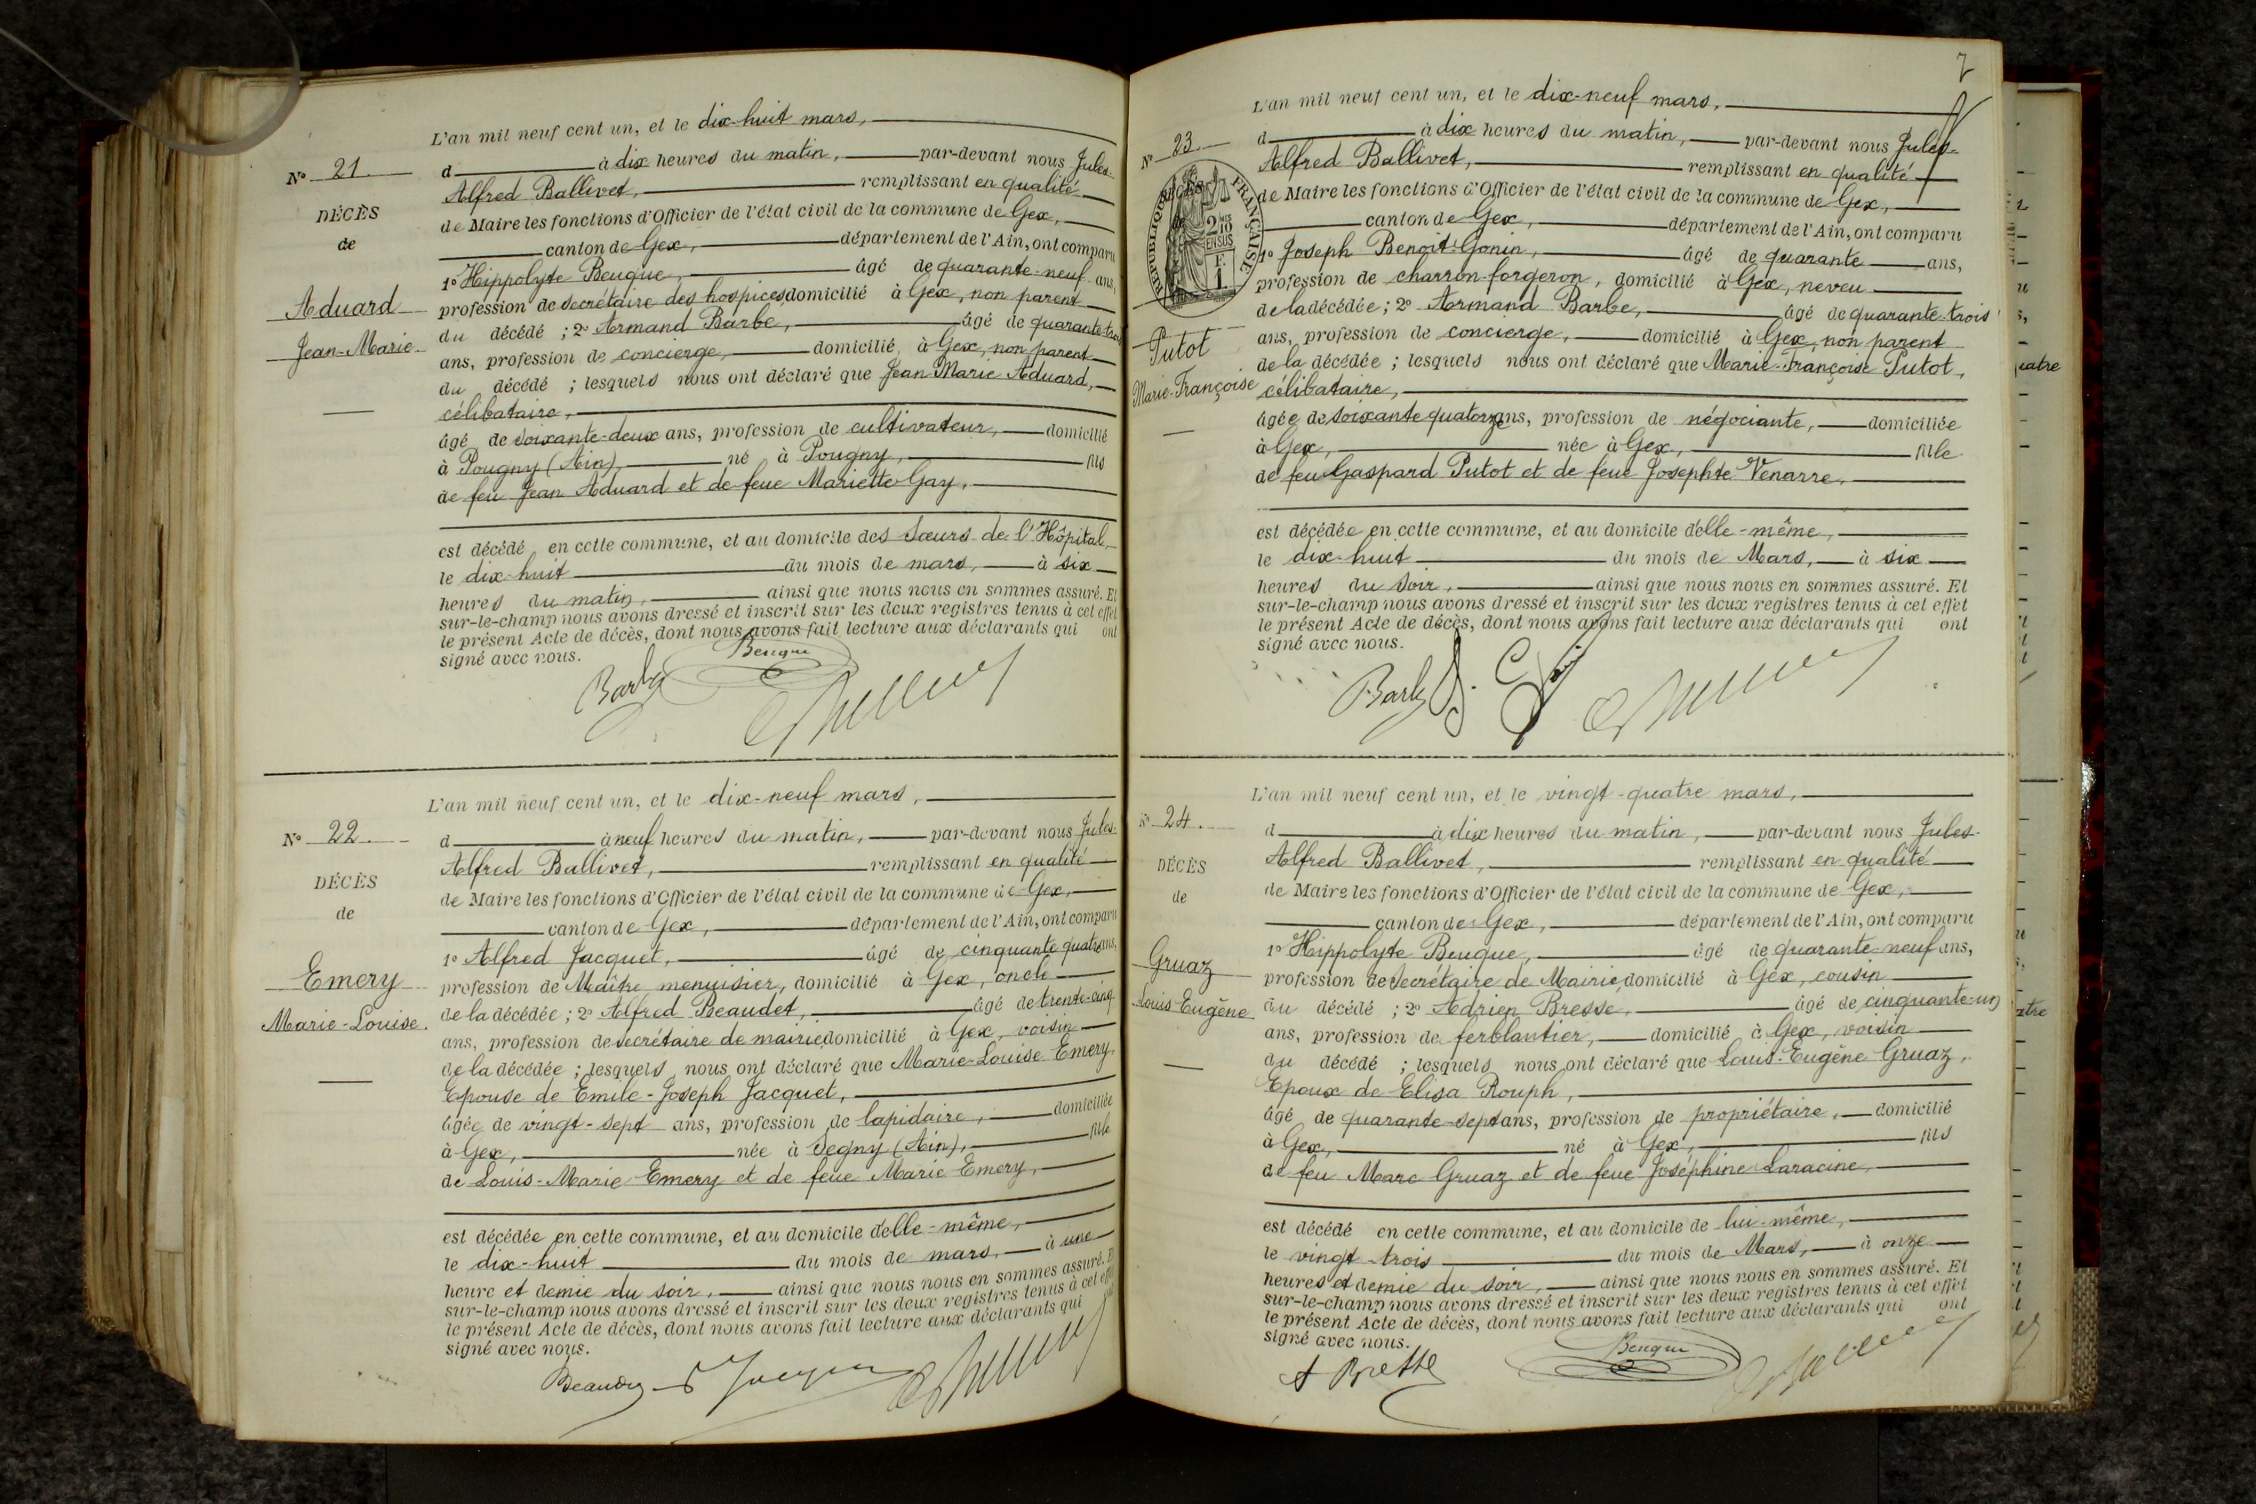 L'an mil neuf cent un, et le dix-huit mars,
No 21.
d à dix heures du matin, par-devant nous Jules-
Alfred Ballivet, remplissant en qualité
DÉCÈS
de Maire les fonctions d'Officier de l'état civil de la commune de Gex,
de
canton de Gex, département de l'Ain, ont comparu
1o Hippolyte Beuque, âgé de quarante-neuf ans,
Aduard
profession de secrétaire des hospices, domicilié à Gex, non parent
du décédé ; 2o Armand Barbe, âgé de quarante-trois
Jean-Marie
ans, profession de concierge, domicilié à Gex, non parent
du décédé ; lesquels nous ont déclaré que Jean Marie Aduard,
célibataire,
âgé de soixante-deux ans, profession de cultivateur, domicilié
à Pougny (Ain), né à Pougny, fils
de feu Jean Aduard et de feue Mariette Gay,
est décédé en cette commune, et au domicile des Sœurs de l'Hôpital,
le dix-huit du mois de mars, à six
heures du matin, ainsi que nous nous en sommes assuré. Et
sur-le-champ nous avons dressé et inscrit sur les deux registres tenus à cet effet
le présent Acte de décès, dont nous avons fait lecture aux déclarants qui ont
signé avec nous.
Barbe Beuque
L'an mil neuf cent un, et le dix-neuf mars,
No 22.
d à neuf heures du matin, par-devant nous Jules-
Alfred Ballivet, remplissant en qualité
DÉCÈS
de Maire les fonctions d'Officier de l'état civil de la commune de Gex,
de
canton de Gex, département de l'Ain, ont comparu
1o Alfred Jacquet, âgé de cinquante quatre ans,
Emery
profession de Maître menuisier, domicilié à Gex, oncle
de la décédée ; 2o Alfred Beaudet, âgé de trente-cinq
Marie-Louise.
ans, profession de secrétaire de mairie, domicilié à Gex, voisin
de la décédée ; lesquels nous ont déclaré que Marie-Louise Emery,
Epouse de Emile-Joseph Jacquet,
âgée de vingt-sept ans, profession de lapidaire, domiciliée
à Gex, née à Segny (Ain), fille
de Louis-Marie Emery et de feue Marie Emery,
est décédée en cette commune, et au domicile d'elle-même,
le dix-huit du mois de mars, à une
heure et demie du soir, ainsi que nous nous en sommes assuré. Et
sur-le-champ nous avons dressé et inscrit sur les deux registres tenus à cet effet
le présent Acte de décès, dont nous avons fait lecture aux déclarants qui
signé avec nous.
Beaudet Jacquet
7
L'an mil neuf cent un, et le dix-neuf mars,
No 23.
d à dix heures du matin, par-devant nous Jules-
Alfred Ballivet, remplissant en qualité
DÉCÈS
RÉPUBLIQUE FRANÇAISE
2 10 EN SUS
F. 1.
de Maire les fonctions d'Officier de l'état civil de la commune de Gex,
de
canton de Gex, département de l'Ain, ont comparu
1o Joseph Benoit-Gonin, âgé de quarante ans,
profession de charron-forgeron, domicilié à Gex, neveu
de la décédée ; 2o Armand Barbe, âgé de quarante-trois
Putot
ans, profession de concierge, domicilié à Gex, non parent
de la décédée ; lesquels nous ont déclaré que Marie-Françoise Putot,
Marie-Françoise
célibataire,
âgée de soixante quatorze ans, profession de négociante, domiciliée
à Gex, née à Gex, fille
de feu Gaspard Putot et de feue Josephte Venarre,
est décédée en cette commune, et au domicile d'elle-même,
le dix-huit du mois de Mars, à six
heures du soir, ainsi que nous nous en sommes assuré. Et
sur-le-champ nous avons dressé et inscrit sur les deux registres tenus à cet effet
le présent Acte de décès, dont nous avons fait lecture aux déclarants qui ont
signé avec nous.
Barbe
L'an mil neuf cent un, et le vingt-quatre mars,
No 24.
d à dix heures du matin, par-devant nous Jules-
Alfred Ballivet, remplissant en qualité
DÉCÈS
de Maire les fonctions d'Officier de l'état civil de la commune de Gex,
de
canton de Gex, département de l'Ain, ont comparu
1o Hippolyte Beuque, âgé de quarante-neuf ans,
Gruaz
profession de secrétaire de Mairie, domicilié à Gex, cousin
Louis Eugène
du décédé ; 2o Adrien Bresse, âgé de cinquante-un
ans, profession de ferblantier, domicilié à Gex, voisin
du décédé ; lesquels nous ont déclaré que Louis-Eugène Gruaz,
Epoux de Elisa Rouph,
âgé de quarante-sept ans, profession de propriétaire, domicilié
à Gex, né à Gex, fils
de feu Marc Gruaz et de feue Joséphine Laracine,
est décédé en cette commune, et au domicile de lui-même,
le vingt-trois du mois de Mars, à onze
heures et demie du soir, ainsi que nous nous en sommes assuré. Et
sur-le-champ nous avons dressé et inscrit sur les deux registres tenus à cet effet
le présent Acte de décès, dont nous avons fait lecture aux déclarants qui ont
signé avec nous.
A Bresse Beuque